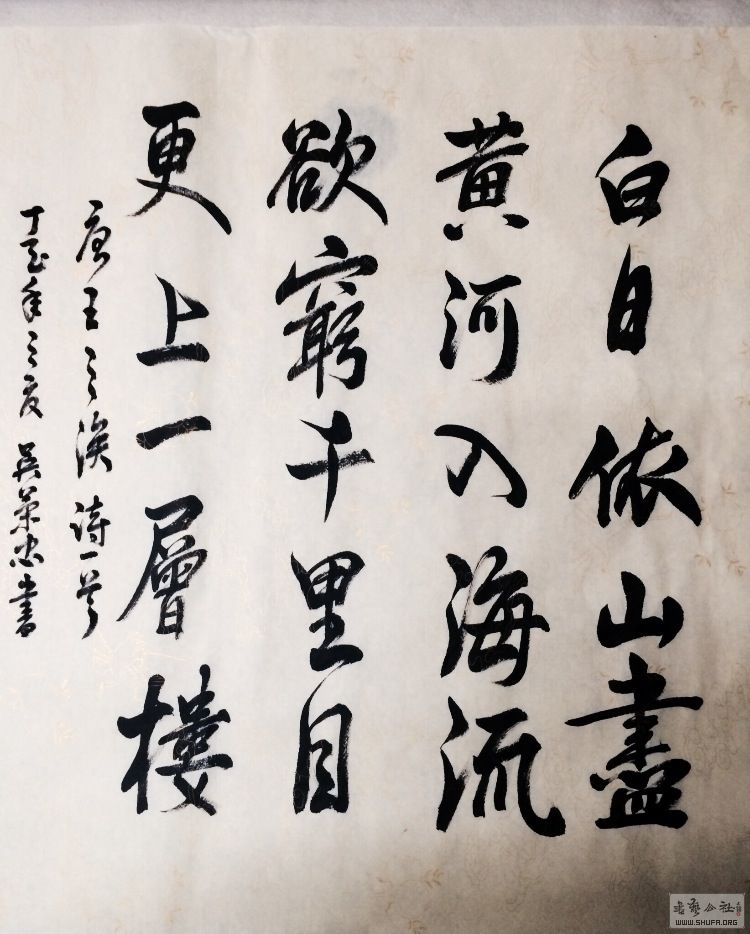 白日依山盡
黄河入海流
欲窮千里目
更上一層樓
唐王之渙詩一首
丁酉年之夏 吳荣忠書
書藝公社
WWW.SHUFA.ORG